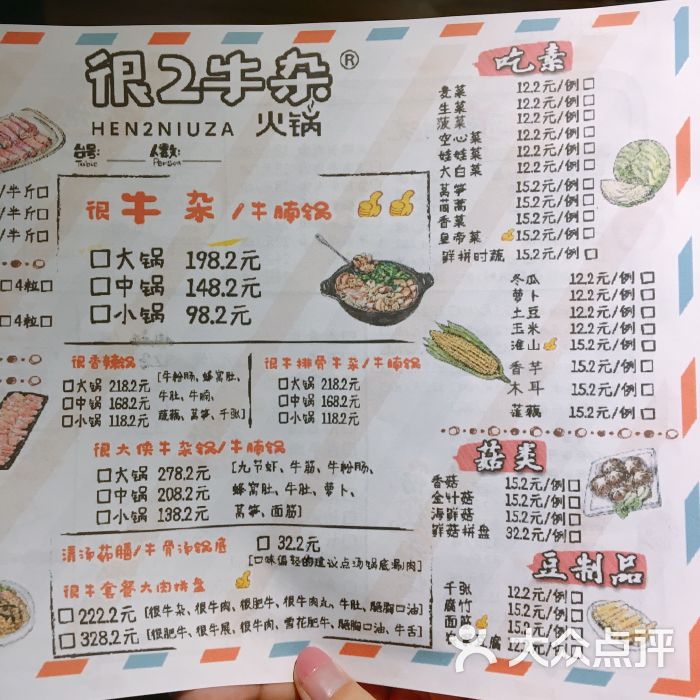 很2牛杂®
HEN2NIUZA 火锅
台号:
Table
人数:
Person
/半斤□
/半斤□
/半斤□
□4粒□
□4粒□
很牛杂/牛腩锅
□大锅 198.2元
□中锅 148.2元
□小锅 98.2元
很香辣锅
□大锅 218.2元
□中锅 168.2元
□小锅 118.2元
[牛粉肠、蜂窝肚、
牛肚、牛腩、
莲藕、莴笋、千张]
很牛排骨牛杂/牛腩锅
□大锅 218.2元
□中锅 168.2元
□小锅 118.2元
很大侠牛杂锅/牛腩锅
□大锅 278.2元
□中锅 208.2元
□小锅 138.2元
[九节虾、牛筋、牛粉肠、
蜂窝肚、牛肚、萝卜、
莴笋、面筋]
清汤茄腩/牛骨汤锅底 □ 32.2元
[口味偏轻的建议点汤锅底涮肉]
很牛套餐大肉拼盘
□ 222.2元 [很牛杂、很牛肉、很肥牛、很牛肉丸、牛肚、脑胸口油]
□ 328.2元 [很肥牛、很牛展、很牛肉、雪花肥牛、脑胸口油、牛舌]
吃素
麦菜 12.2元/例□
生菜 12.2元/例□
菠菜 12.2元/例□
空心菜 12.2元/例□
娃娃菜 12.2元/例□
大白菜 12.2元/例□
莴笋 15.2元/例□
茼蒿 15.2元/例□
香菜 15.2元/例□
皇帝菜 15.2元/例□
鲜拼时蔬 15.2元/例□
冬瓜 12.2元/例□
萝卜 12.2元/例□
土豆 12.2元/例□
玉米 12.2元/例□
淮山 15.2元/例□
香芋 15.2元/例□
木耳 15.2元/例□
莲藕 15.2元/例□
菇类
香菇 15.2元/例□
金针菇 15.2元/例□
海鲜菇 15.2元/例□
鲜菇拼盘 32.2元/例□
豆制品
千张 12.2元/例□
腐竹 15.2元/例□
面筋 15.2元/例□
腐 12.2元/例□
大众点评